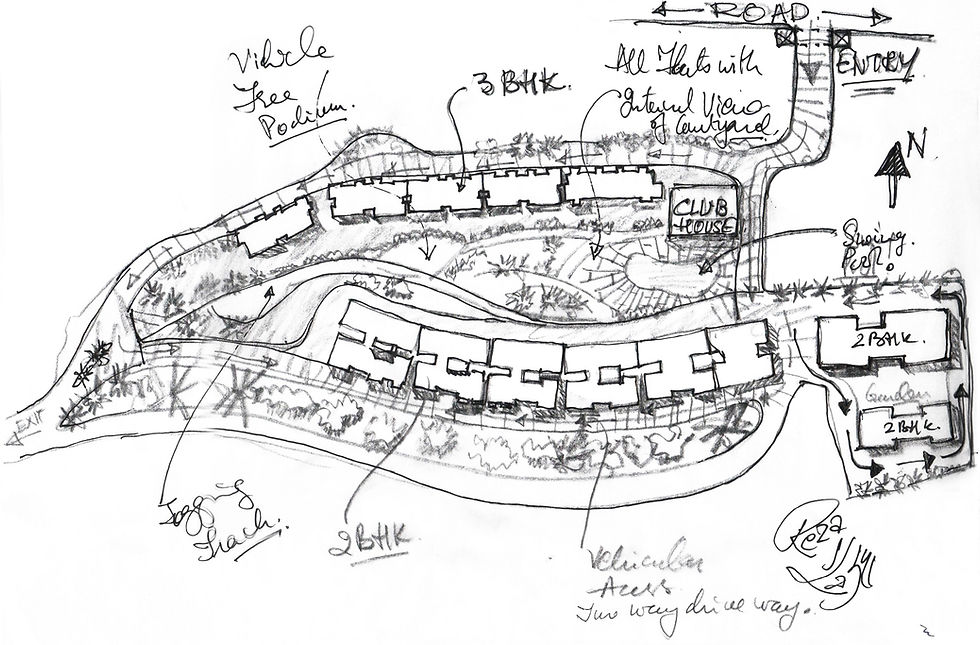 ROAD
ENTRY
Vihicle
Free
Podium.
3 BHK.
All Flats with
Internal View
of Courtyard.
N
CLUB
HOUSE
2BHK.
Garden
2BHK.
EXIT
Jogging
Track.
2BHK
Vehicular
Access
Two way drive way.
Reza